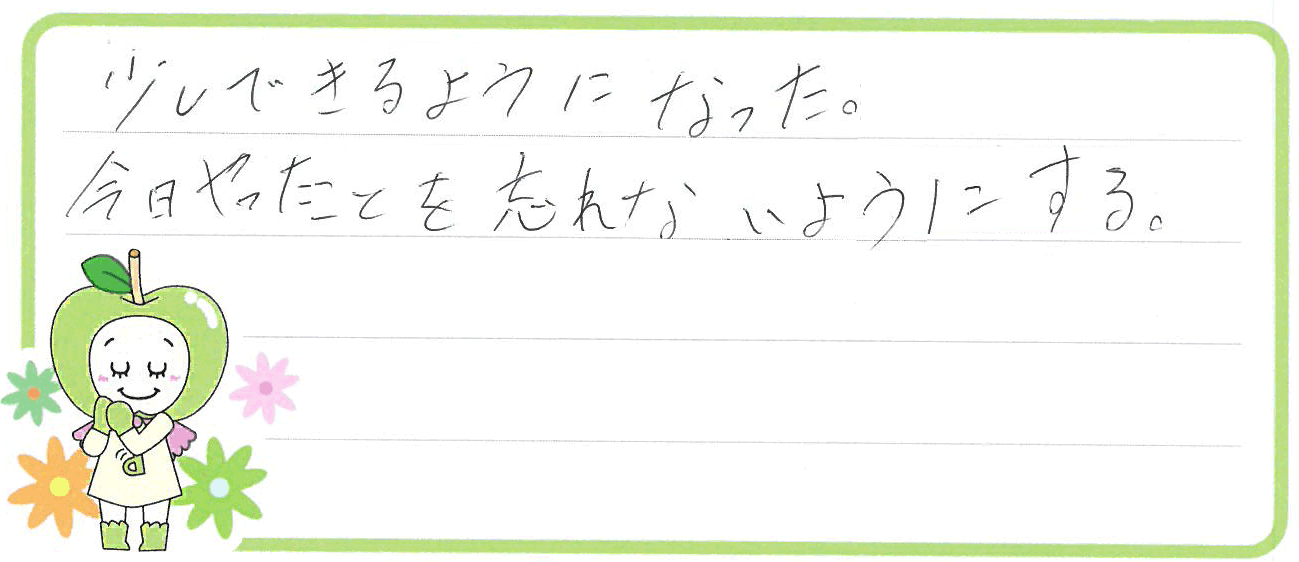 少しできるようになった。
今日やったことを忘れないようにする。